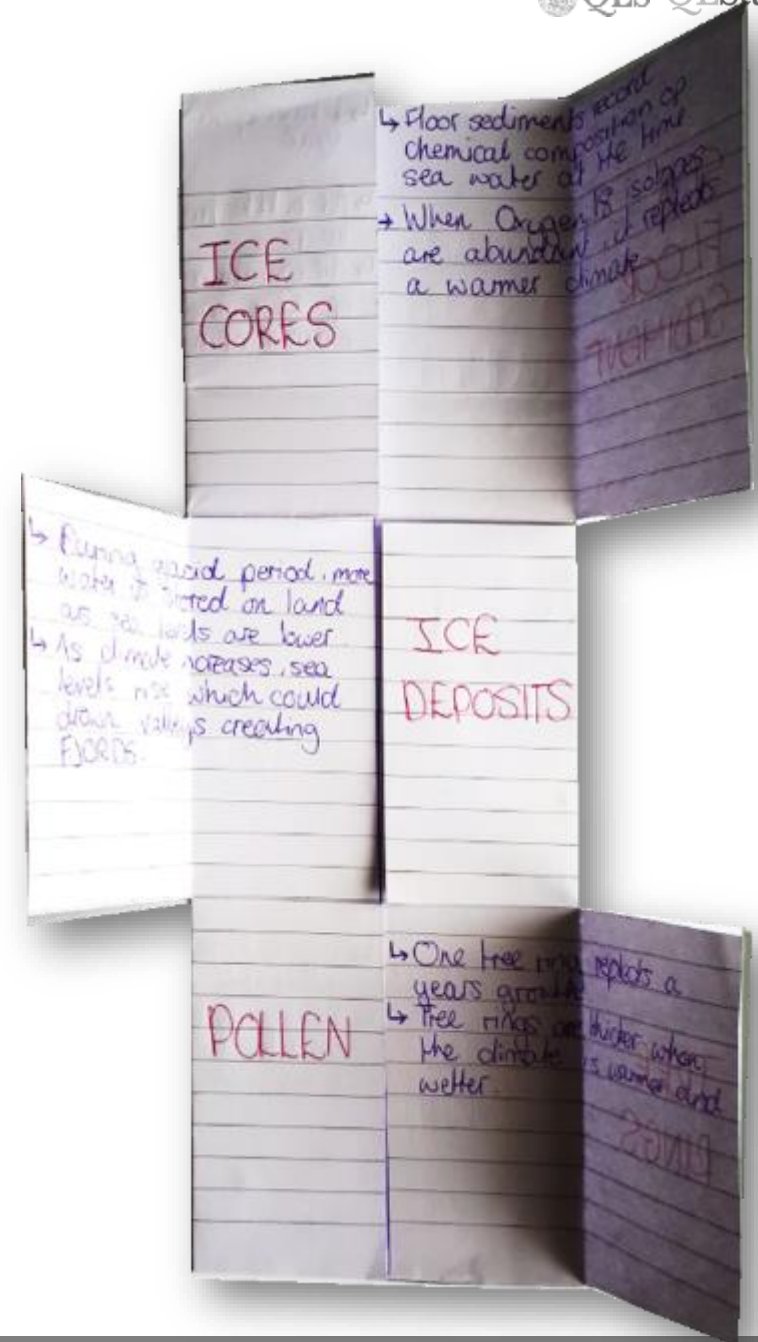 ICE
CORES
↳ Floor sediments record
chemical composition of
sea water at the time
→ When Oxygen 18 isotopes
are abundant, it reflects
a warmer climate
FLOOR
SEDIMENT
↳ During glacial period, more
water is stored on land
as sea levels are lower.
↳ As climate increases, sea
levels rise which could
drown valleys creating
FJORDS.
ICE
DEPOSITS
POLLEN
↳ One tree ring reflects a
years growth
↳ Tree rings are thicker when
the climate is warmer and
wetter.
RINGS